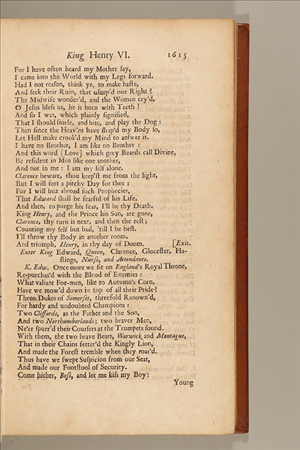 King Henry VI. 1615
For I have often heard my Mother say,
I came into the World with my Legs forward.
Had I not reason, think ye, to make haste,
And seek their Ruin, that usurp'd our Right?
The Midwife wonder'd, and the Women cry'd,
O Jesus bless us, he is born with Teeth!
And so I was, which plainly signified,
That I should snarle, and bite, and play the Dog:
Then since the Heav'ns have shap'd my Body so,
Let Hell make crook'd my Mind to answer it.
I have no Brother, I am like no Brother:
And this word [Love] which grey Beards call Divine,
Be resident in Men like one another,
And not in me: I am my self alone.
Clarence beware, thou keep'st me from the light,
But I will sort a pitchy Day for thee:
For I will buz abroad such Prophecies,
That Edward shall be fearful of his Life,
And then, to purge his fear, I'll be thy Death.
King Henry, and the Prince his Son, are gone,
Clarence, thy turn is next, and then the rest;
Counting my self but bad, 'till I be best.
I'll throw thy Body in another room,
And triumph, Henry, in thy day of Doom. [Exit.
Enter King Edward, Queen, Clarence, Glocester, Ha-
stings, Nurse, and Attendants.
K. Edw. Once more we sit on England's Royal Throne,
Re-purchas'd with the Blood of Enemies:
What valiant Foe-men, like to Autumn's Corn,
Have we mow'd down in top of all their Pride?
Three Dukes of Somerset, threefold Renown'd,
For hardy and undoubted Champions:
Two Cliffords, as the Father and the Son,
And two Northumberlands; two braver Men,
Ne'er spurr'd their Coursers at the Trumpets sound.
With them, the two brave Bears, Warwick and Montague,
That in their Chains fetter'd the Kingly Lion,
And made the Forest tremble when they roar'd.
Thus have we swept Suspicion from our Seat,
And made our Footstool of Security.
Come hither, Bess, and let me kiss my Boy:
Young